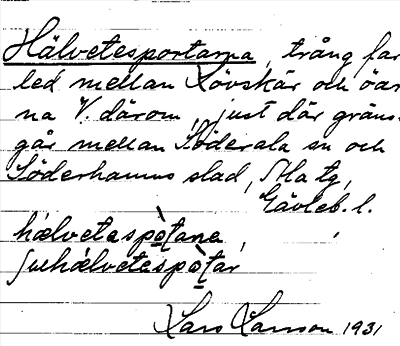 Hälvetesportarna, trång far
led mellan Lövskär och öar
na V. därom, just där gräns.
går mellan Söderala sn och
Söderhamns stad, Ma tg,
Gävleb. l.
hælvetaspò̱ṭana,
hælvetespò̱ṭar
Lars Larsson 1931